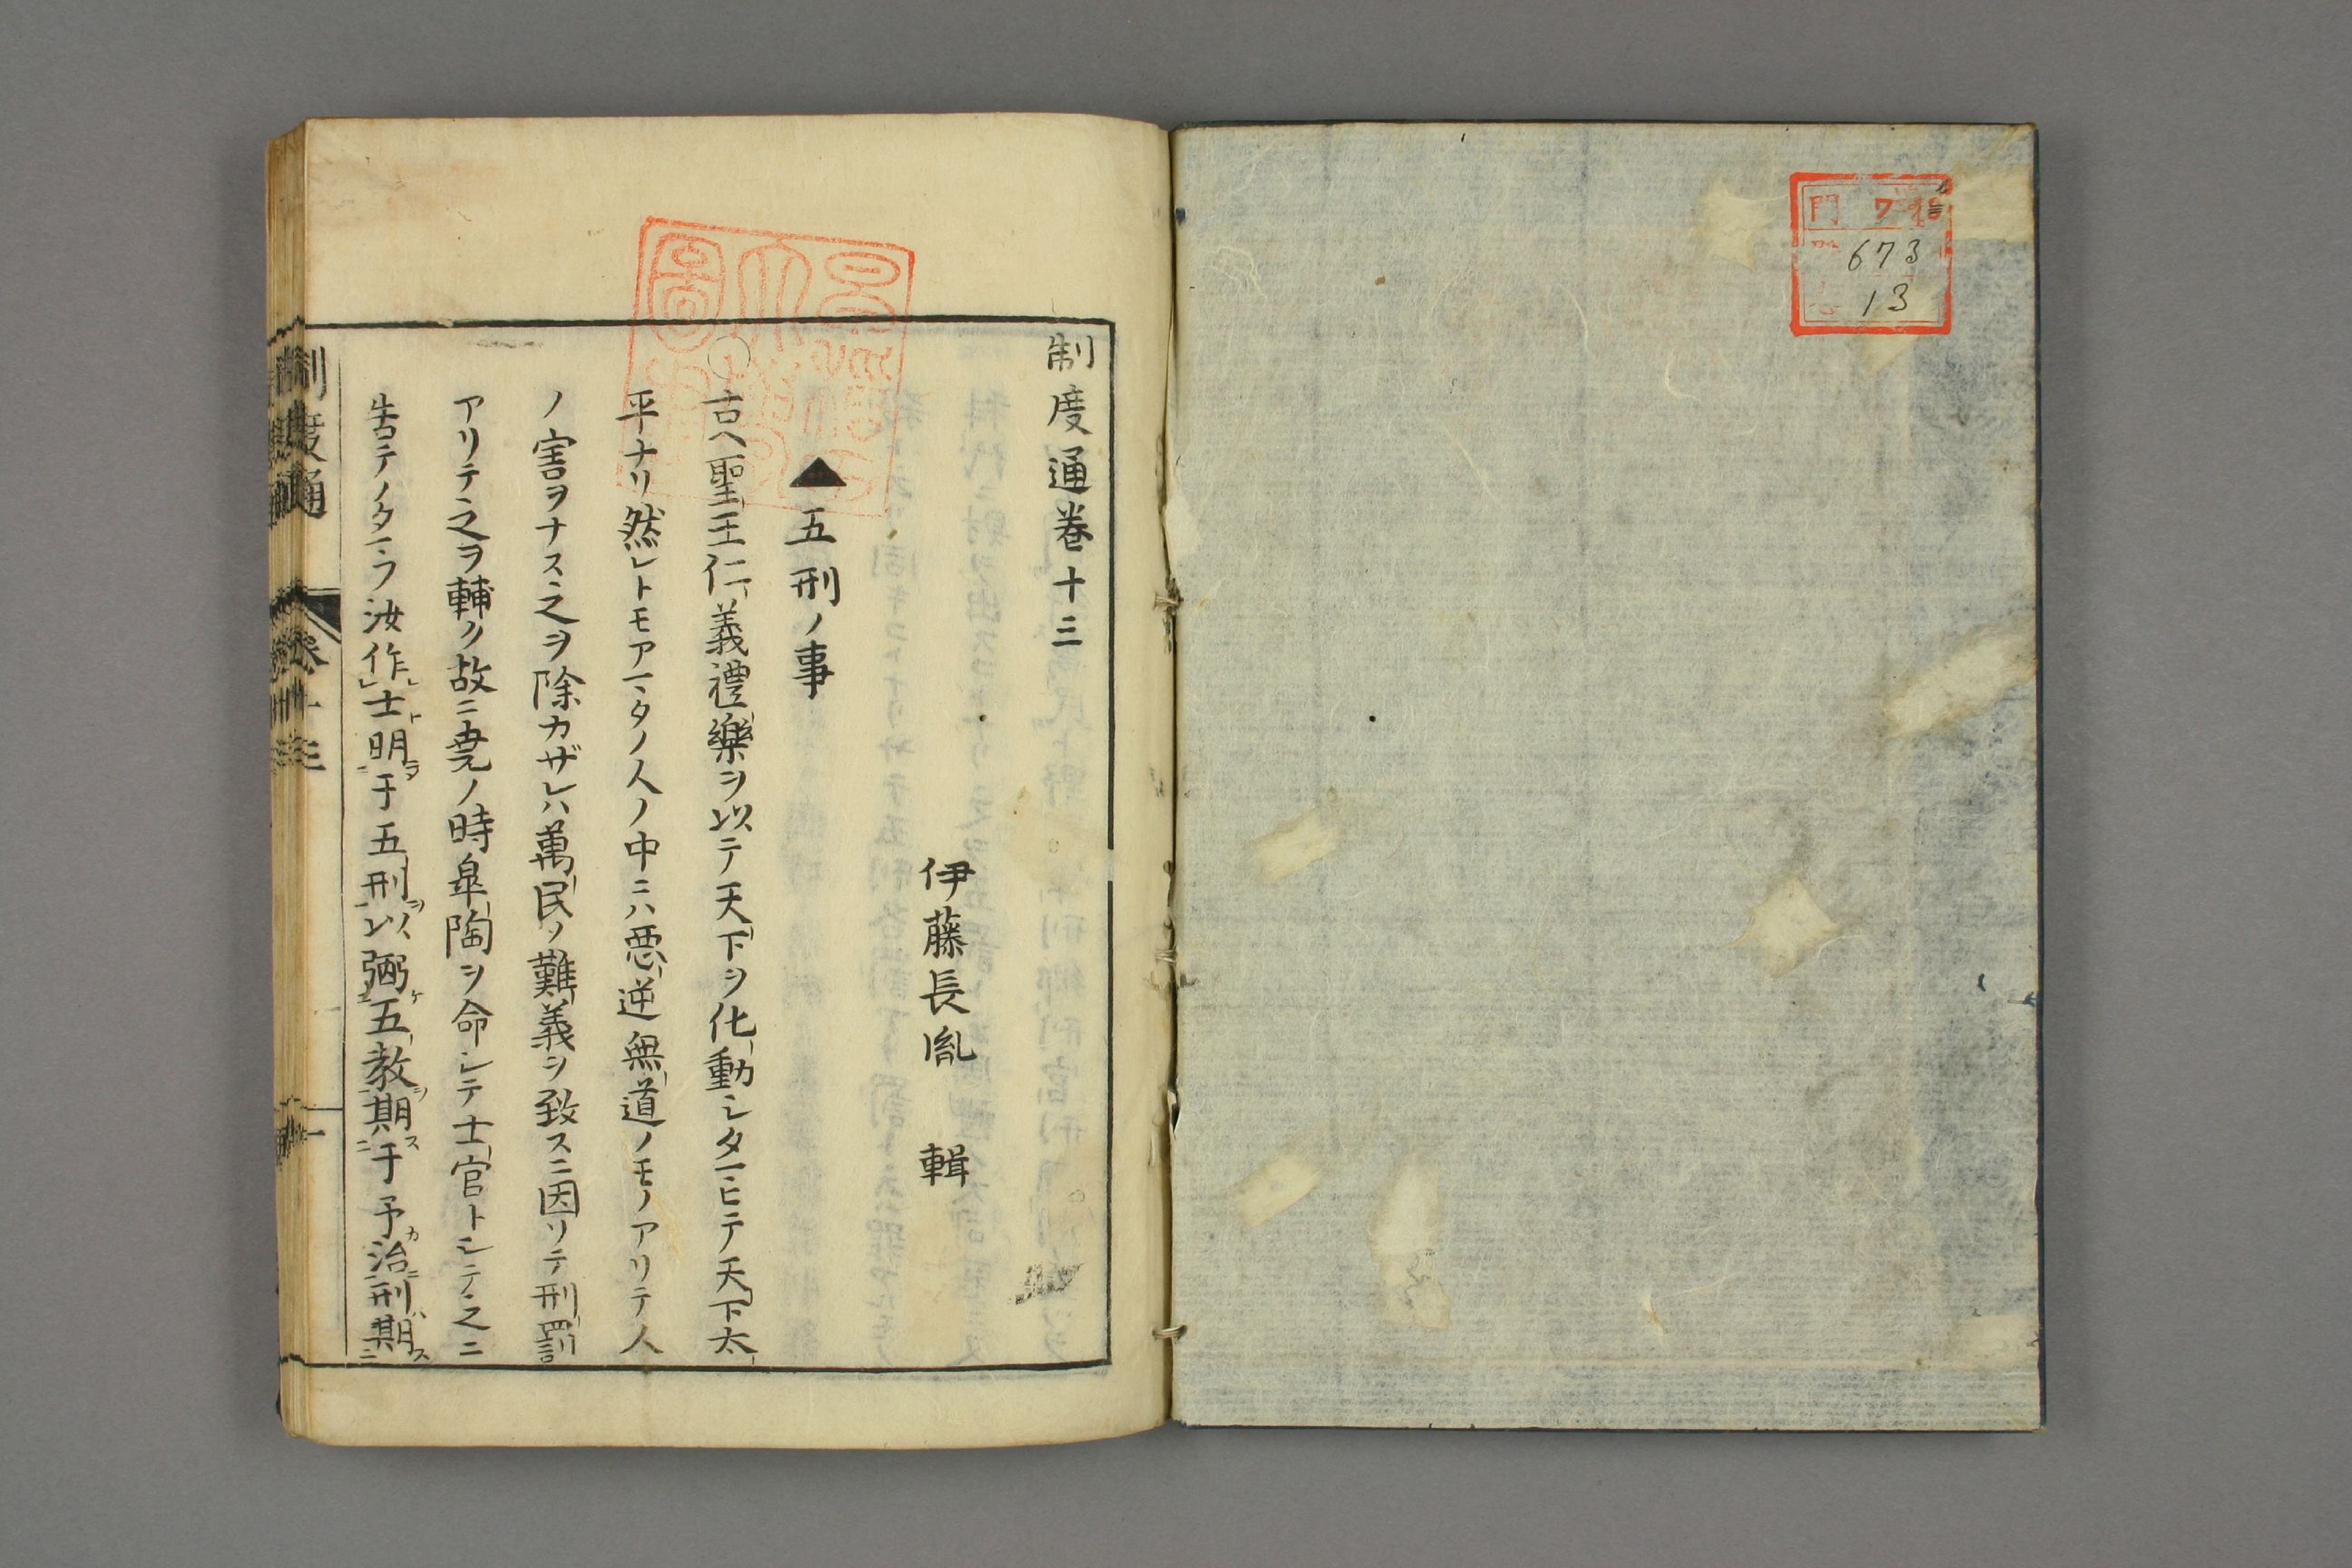 門 ワ
673
13
制度通卷十三
伊藤長胤 輯
▲五刑ノ事
○古ヘ聖王仁義禮樂ヲ以テ天下ヲ化動シタマヒテ天下太
平ナリ然レトモアマタノ人ノ中ニハ悪逆無道ノモノアリテ人
ノ害ヲナス之ヲ除カザレハ萬民ノ難義ヲ致スニ因ソテ刑罰
アリテ之ヲ輔ク故ニ堯ノ時皐陶ヲ命シテ士官トシテ之ニ
告テノタマフ汝作士明于五刑以弼五教期于予治刑期
制度通 卷十三 一